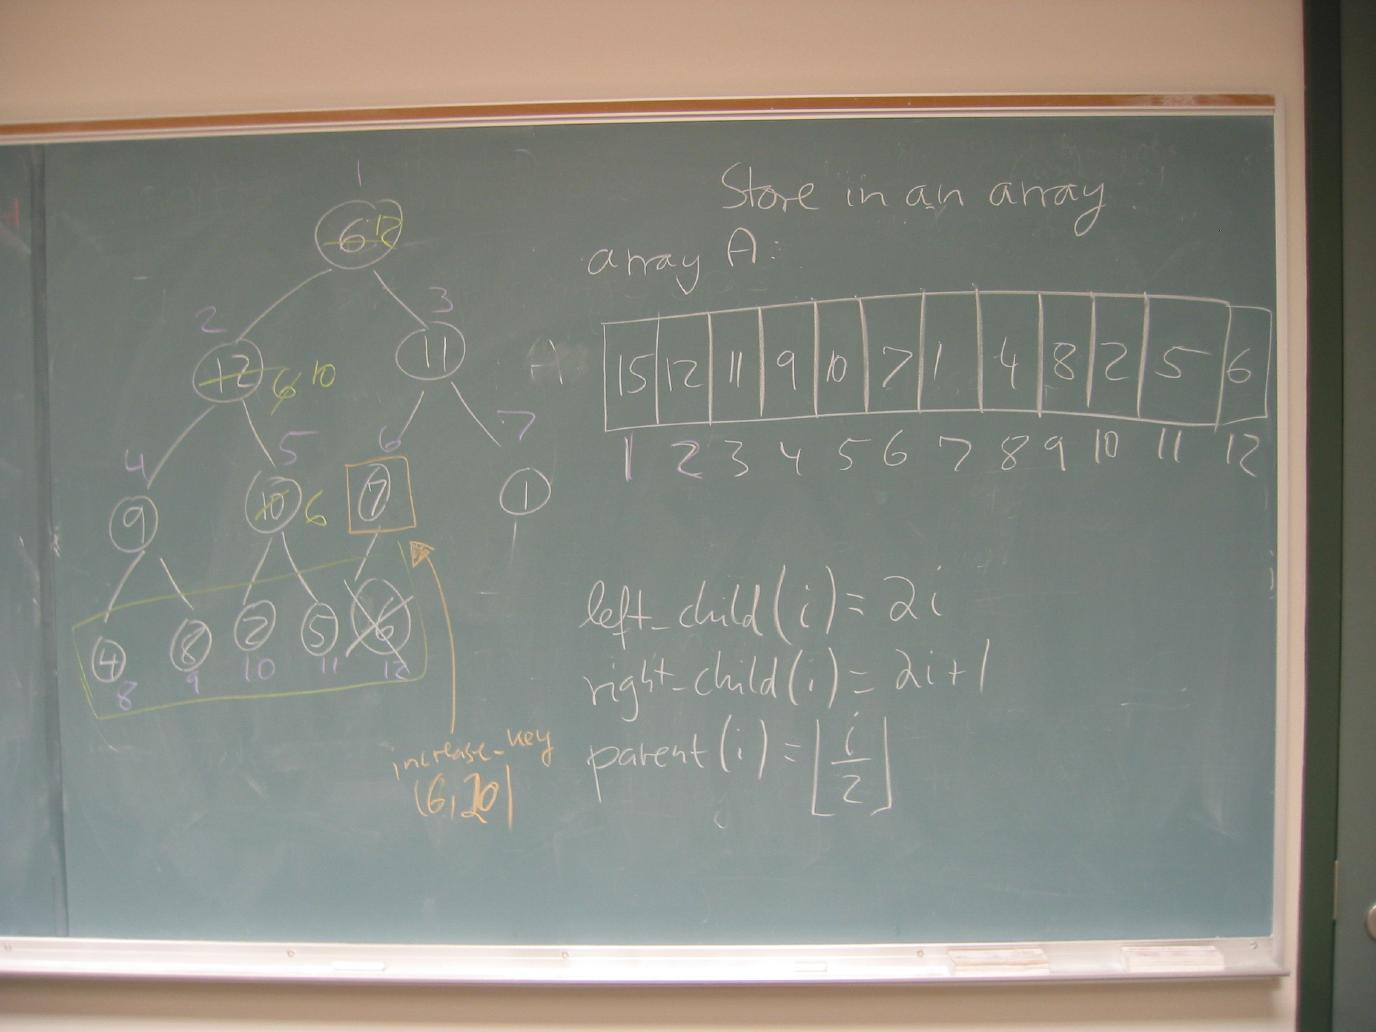 1
6 12
2
3
12 6 10
11
4
5
6
7
9
10 6
7
1
4
8
2
5
6
8
9
10
11
12
increase-key
(6,20)
Store in an array
array A:
15 12 11 9 10 7 1 4 8 2 5 6
1 2 3 4 5 6 7 8 9 10 11 12
left-child(i) = 2i
right-child(i) = 2i+1
parent(i) = ⌊i/2⌋